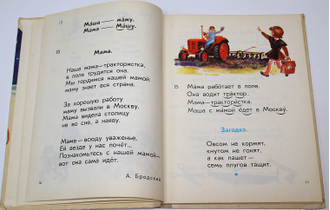 Маша — мажу.
Мама — Машу.
Мама.
Наша мама—трактористка,
в поле трудится она.
Мы гордимся нашей мамой:
маму знает вся страна.
За хорошую работу
маму вызвали в Москву.
Мама видела столицу
не во сне, а наяву.
Маме—всюду уваженье.
Ей везде у нас почёт...
Познакомьтесь с нашей мамой—
вот она сама идёт.
А. Бродский
Мама работает в поле.
Она водит трактор.
Мама—трактористка.
Маша с мамой едет в Москву.
Загадка.
Овсом не кормят,
кнутом не гонят,
а как пашет—
семь плугов тащит.